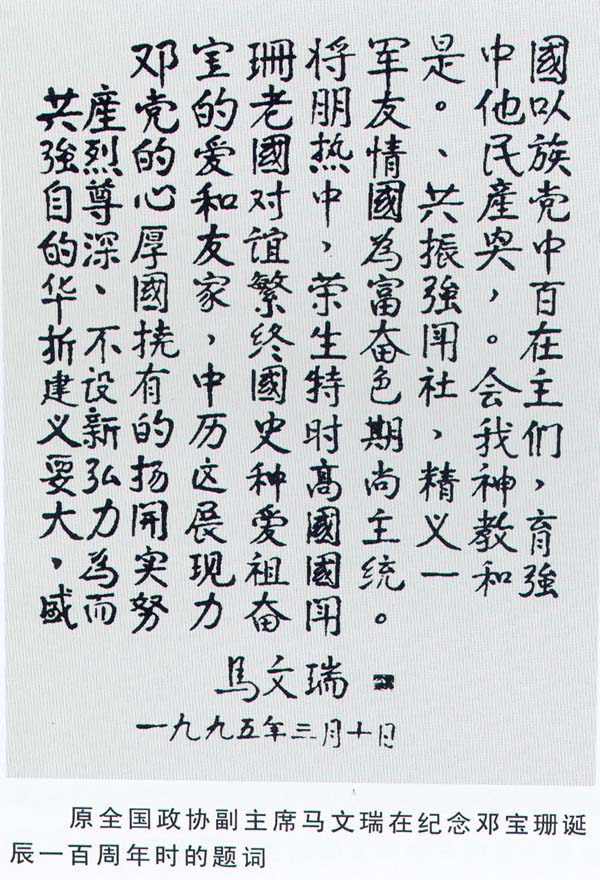 邓宝珊将军是中國
共産党的老朋友。他以
強烈的爱國热情、民族
自尊心和对中國共産党
的深厚友谊，為振兴中
华、國家繁荣富強，百
折不挠，终生奋闘。在
建设有中國特色社会主
义新的历史时期，我们
要弘扬这种高尚精神，
大力開展爱國主义教育
，為实现祖國统一和強
盛而努力奋闘。
馬文瑞
一九九五年三月十日
原全国政协副主席马文瑞在纪念邓宝珊诞
辰一百周年时的题词